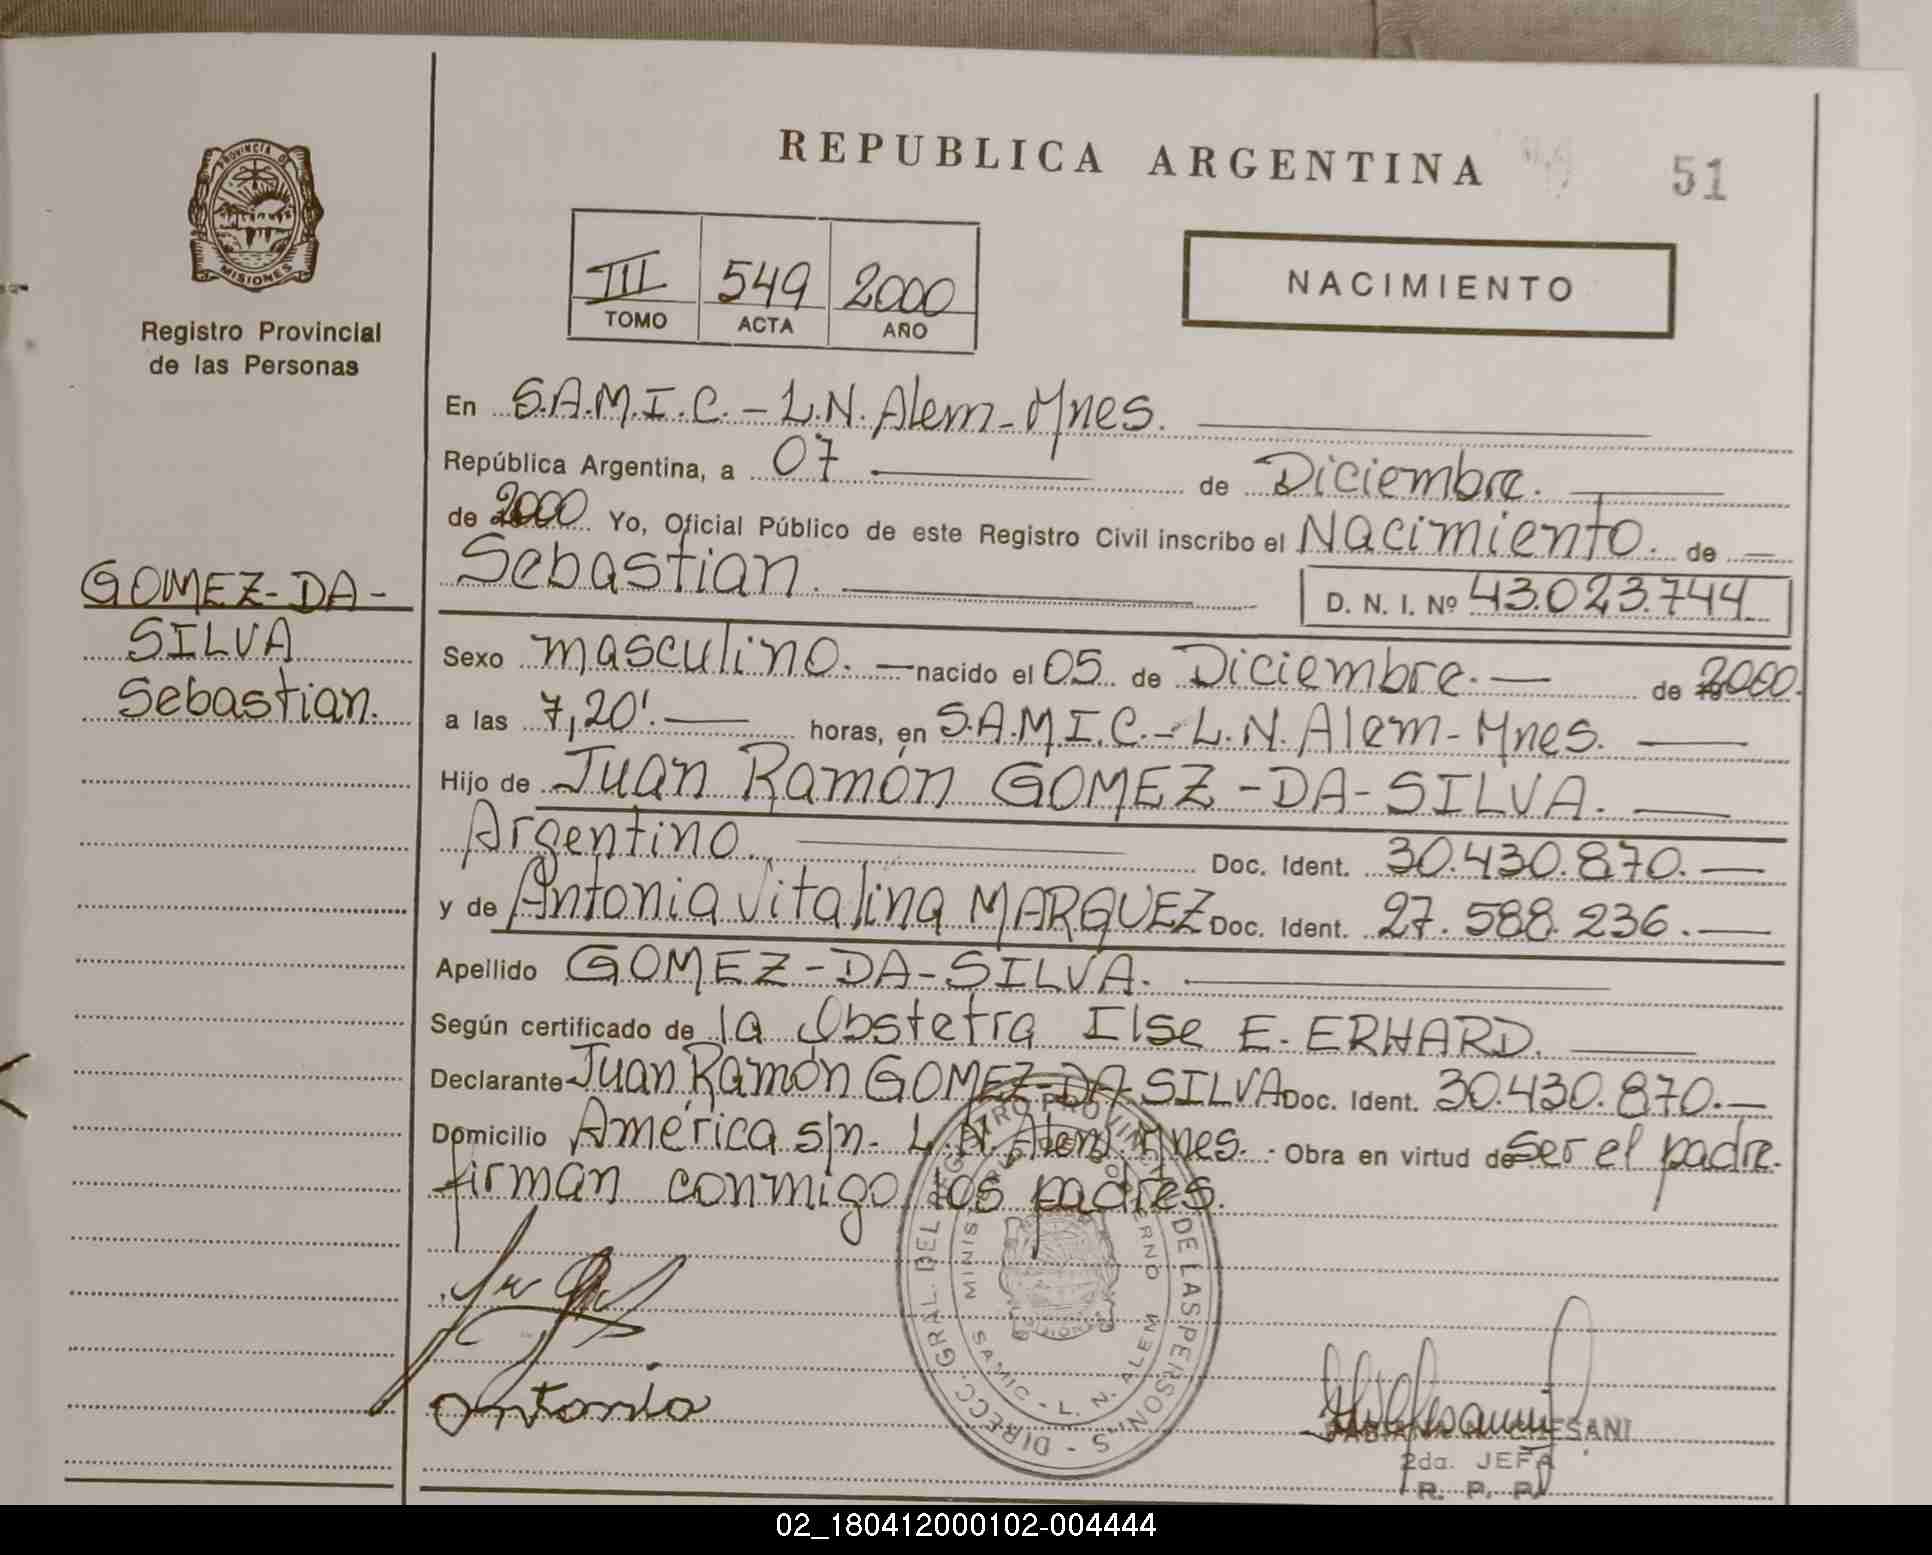 REPUBLICA ARGENTINA
51
PROVINCIA DE
MISIONES
Registro Provincial
de las Personas
III 549 2000
TOMO ACTA AÑO
NACIMIENTO
En S.A.M.I.C. - L.N. Alem - Mnes.
República Argentina, a 07 de Diciembre.
de 2000 Yo, Oficial Público de este Registro Civil inscribo el Nacimiento. de
Sebastian.
D. N. I. Nº 43.023.744
GOMEZ-DA-
SILVA
Sebastian.
Sexo masculino. nacido el 05 de Diciembre. de 2000.
a las 7,20'. horas, en S.A.M.I.C. - L.N. Alem - Mnes.
Hijo de Juan Ramón GOMEZ-DA-SILVA.
Argentino. Doc. Ident. 30.430.870.
y de Antonia Vitalina MARQUEZ Doc. Ident. 27.588.236.
Apellido GOMEZ-DA-SILVA.
Según certificado de la Obstetra Ilse E. ERHARD.
Declarante Juan Ramón GOMEZ-DA-SILVA Doc. Ident. 30.430.870.
Domicilio América s/n. L.N. Alem Mnes. - Obra en virtud de ser el padre.
firman conmigo los padres.
DIRECC. GRAL. DEL REGISTRO PROVINCIAL DE LAS PERSONAS
MINISTERIO DE GOBIERNO
SAMIC - L. N. ALEM
MISIONES
Antonia
FABIANA N. CHESANI
2da. JEFA
R. P. P.
02_180412000102-004444